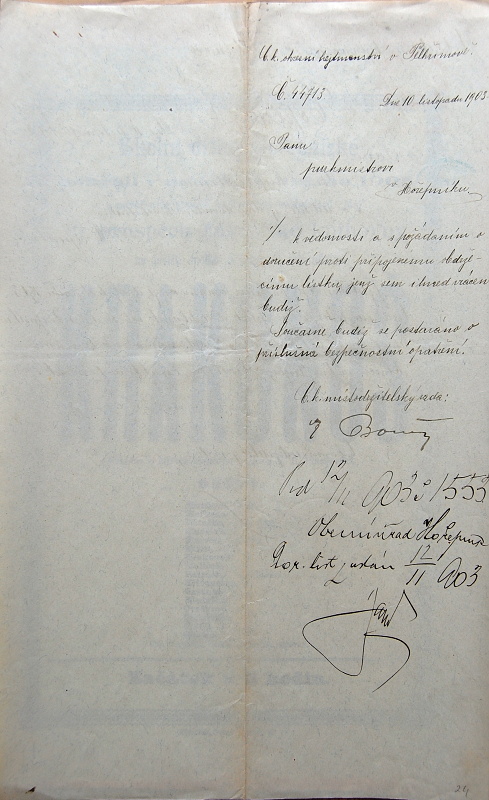 C.k. okresní hejtmanství v Pelhřimově.
Č. 44713. Dne 10. listopadu 1903.
Pánu
purkmistrovi
v Hořepníku
k vědomosti a s požádáním o
doručení proti připojenému obdrže-
címu lístku, jenž sem ihned vrácen
budiž.
Současně budiž se postaráno o
příslušná bezpečnostní opatření.
C.k. místodržitelský rada:
12/11 903 č 1553
Obecní úřad Hořepník
12/11 903
24